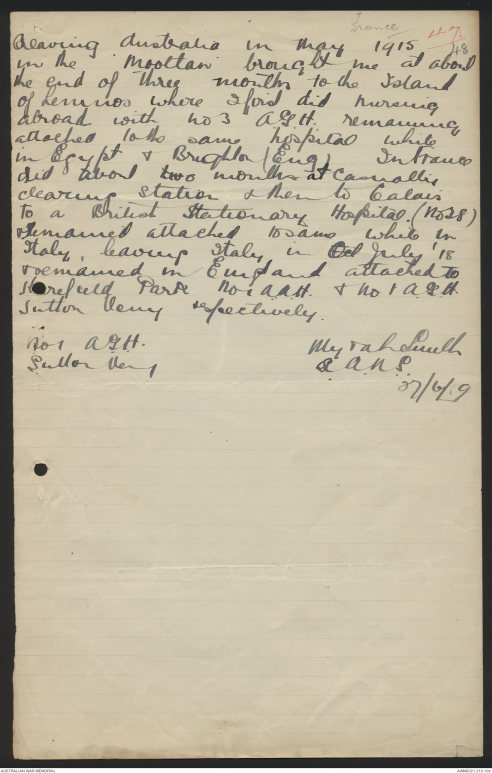 France
47
48
Leaving Australia in May 1915
in the Mooltan brought me at about
the end of three months to the Island
of Lemnos where I first did nursing
abroad with No 3 A.G.H. remaining
attached to the same hospital while
in Egypt & Brighton (Eng). In France
did about two months at Casualty
clearing Station & then to Calais
to a British Stationary Hospital (No 38)
& remained attached to same while in
Italy, leaving Italy in Oct July '18
& remained in England attached to
Harefield Park No 1 A.A.H. & No 1 A.G.H.
Sutton Veny respectively.
No 1 A.G.H.
Sutton Veny
Smith
A.N.S.
27/6/19
AUSTRALIAN WAR MEMORIAL